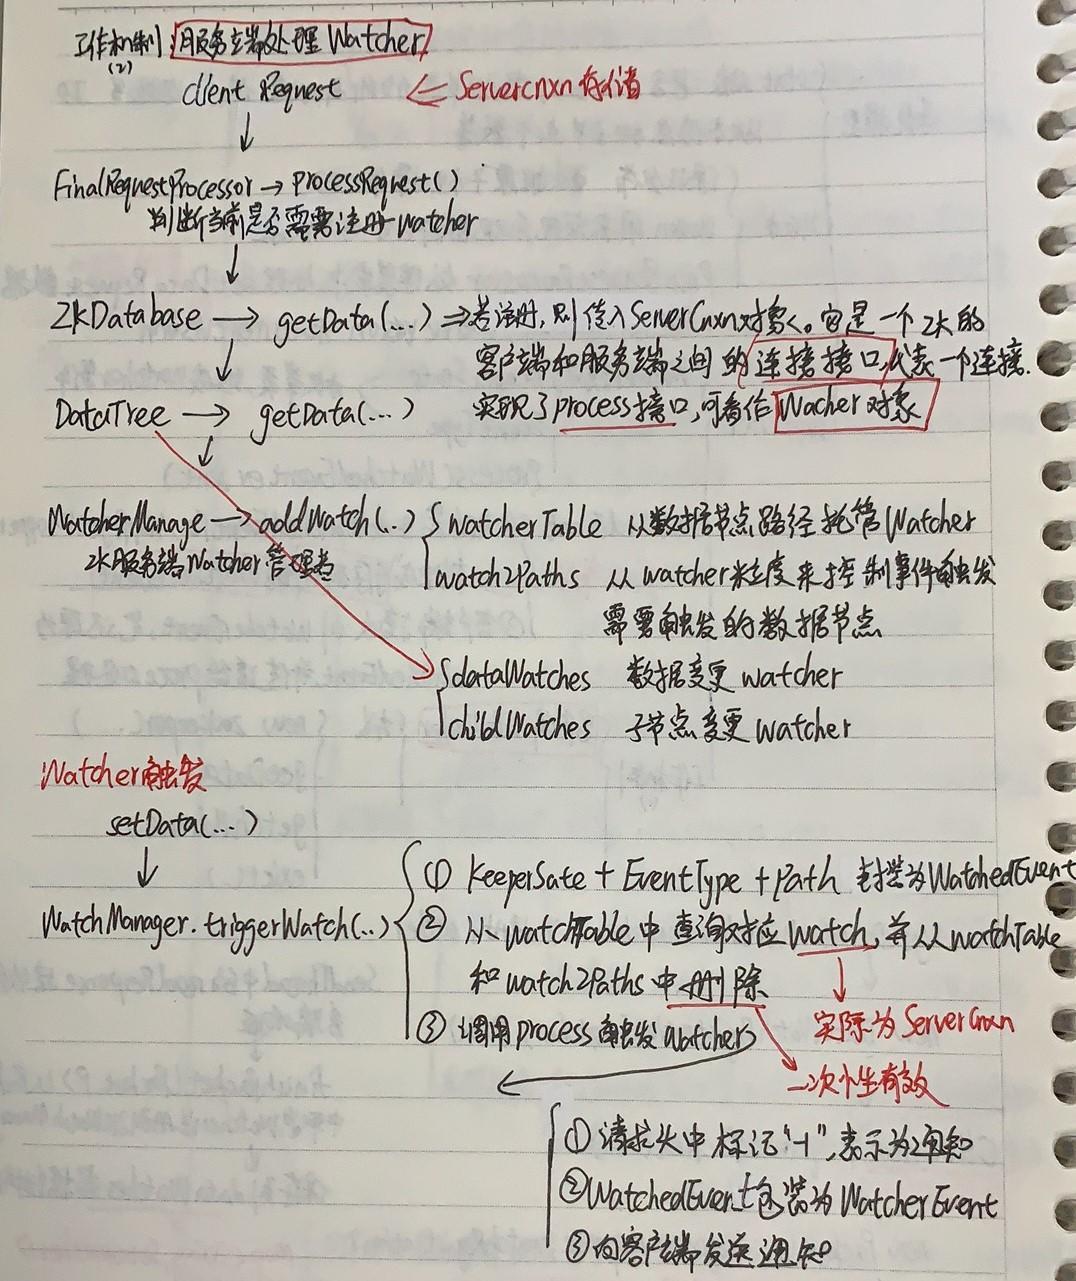 工作机制:服务端处理 Watcher
(2)
client Request ⇐ Servercnxn 存储
↓
FinalRequestProcessor → processRequest()
判断当前是否需要注册 watcher
↓
ZkDatabase → getData(...) ⇒ 若注册,则传入ServerCnxn对象。它是一个 zk 的
客户端和服务端之间的连接接口,代表一个连接.
DataTree → getData(...) 实现了process接口,可看作 Wacher对象
↓
WatcherManage → addWatch(..) { watcherTable 从数据节点路径托管 Watcher
zk服务端 Watcher 管理者
watch2Paths 从 watcher 粒度来控制事件触发
需要触发的数据节点
{ dataWatches 数据变更 watcher
childWatches 子节点变更 watcher
Watcher触发
setData(...)
↓
WatchManager.triggerWatch(..) { ① KeeperSate + EventType + Path 封装为WatchedEvent
② 从 watchTable 中查询对应 watch, 并从 watchTable
和 watch2Paths 中删除
实际为 ServerCnxn
③ 调用 process 触发 Watcher
一次性有效
① 请求头中标记“-1”,表示为通知
② WatchedEvent 包装为 WatcherEvent
③ 向客户端发送通知